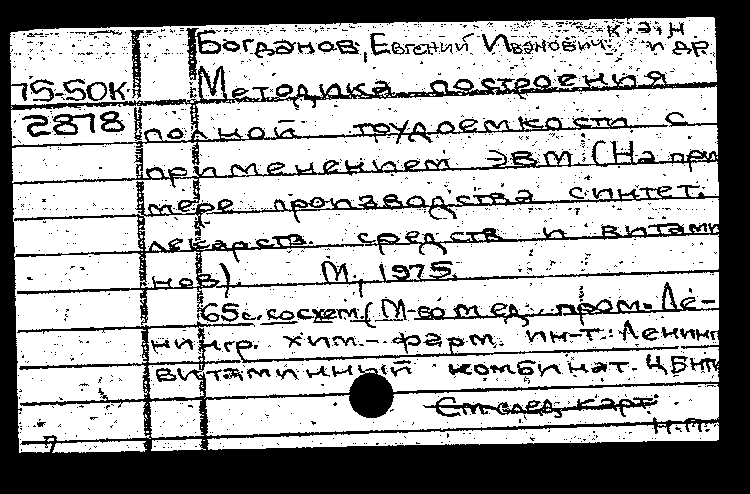 к.э.н
Богданов, Евгений Иванович и др
75-50К Методика построения
2878 полной трудоемкости с
применением ЭВМ (На при
мере производства синтет.
лекарств. средств и витами
нов). М., 1975.
65с. со схем. (М-во мед. пром. Ле-
нингр. хим.-фарм. ин-т. Ленинг
витаминный комбинат. ЦБНТИ
См. след. карт
Н.П.
7